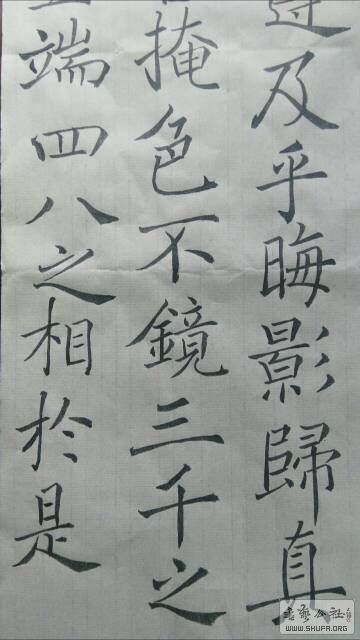 及乎晦影歸真
掩色不鏡三千之
端四八之相於是
書藝公社
WWW.SHUFA.ORG